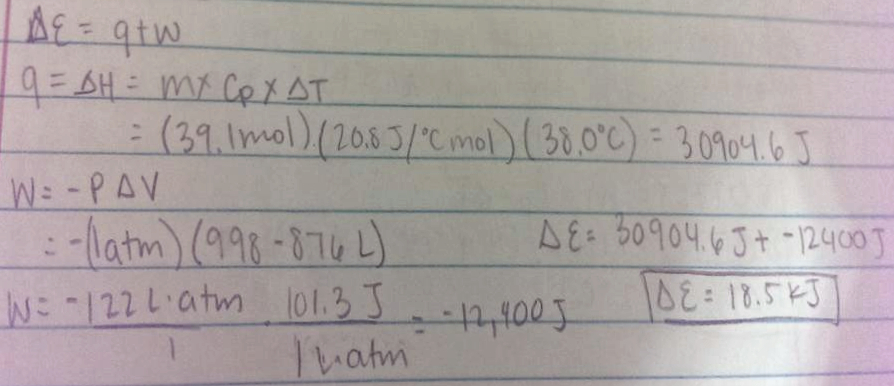 ΔE = q+w
q = ΔH = m x Cp x ΔT
= (39.1mol).(20.8 J/°C mol)(38.0°C) = 30904.6 J
W = -P ΔV
= -(1atm)(998-876 L)
ΔE = 30904.6 J + -12400 J
W = -122 L·atm/1 · 101.3 J/1 L·atm = -12,400 J
ΔE = 18.5 kJ